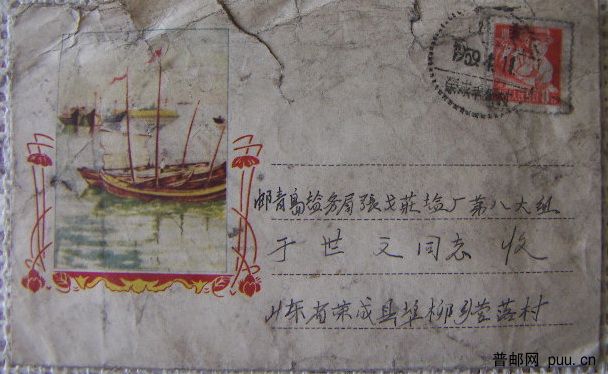 1959.4.11
邮青島盐务局張戈莊盐厂第八大组
于世文同志 收
山东省荣成县埠柳乡营落村
普邮网 puu.cn